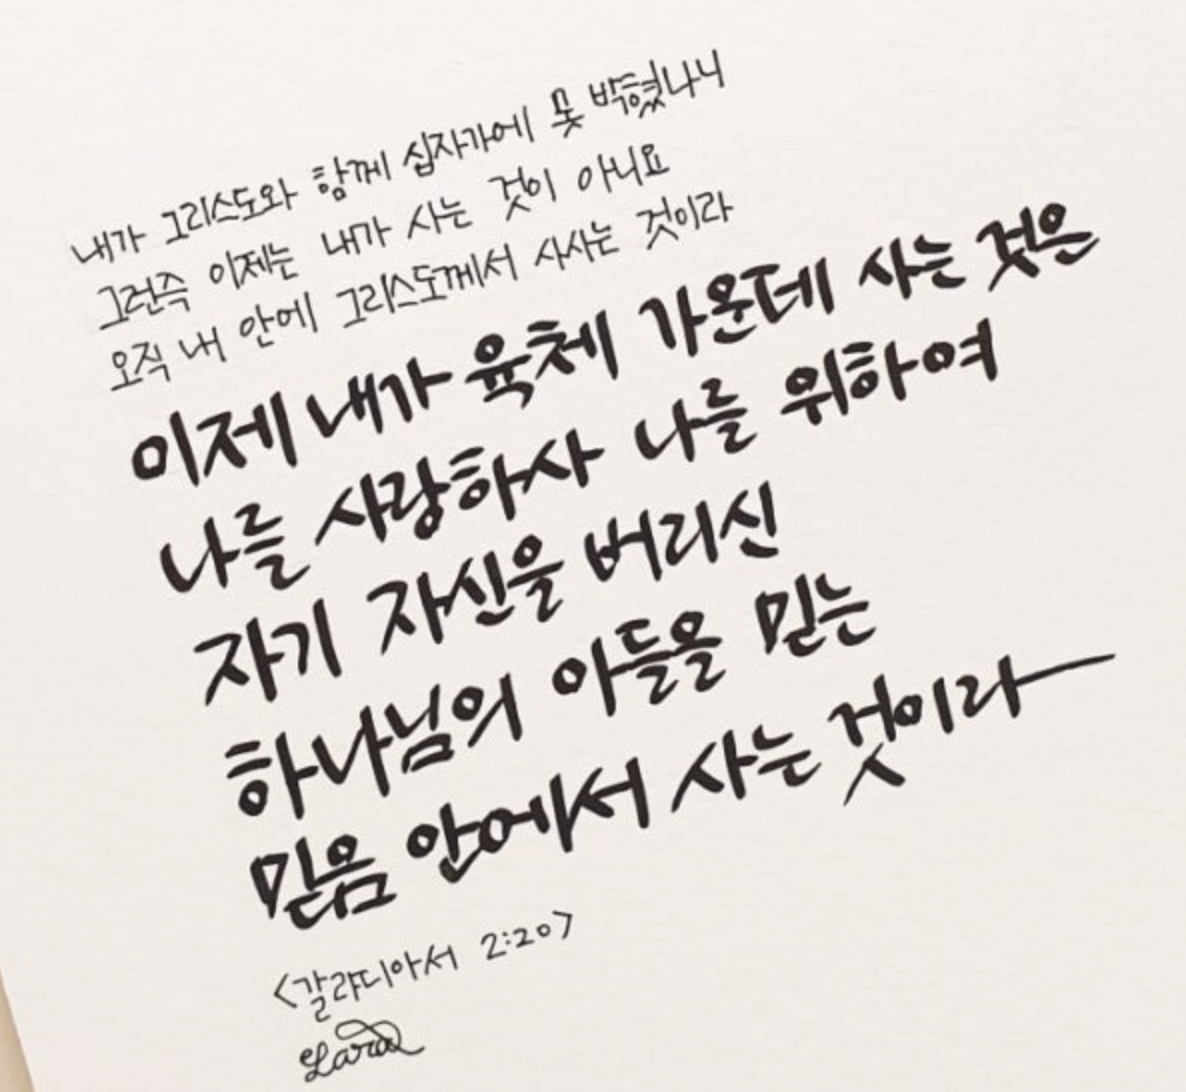 내가 그리스도와 함께 십자가에 못 박혔나니
그런즉 이제는 내가 사는 것이 아니요
오직 내 안에 그리스도께서 사시는 것이라
이제 내가 육체 가운데 사는 것은
나를 사랑하사 나를 위하여
자기 자신을 버리신
하나님의 아들을 믿는
믿음 안에서 사는 것이라
<갈라디아서 2:20>
Lara